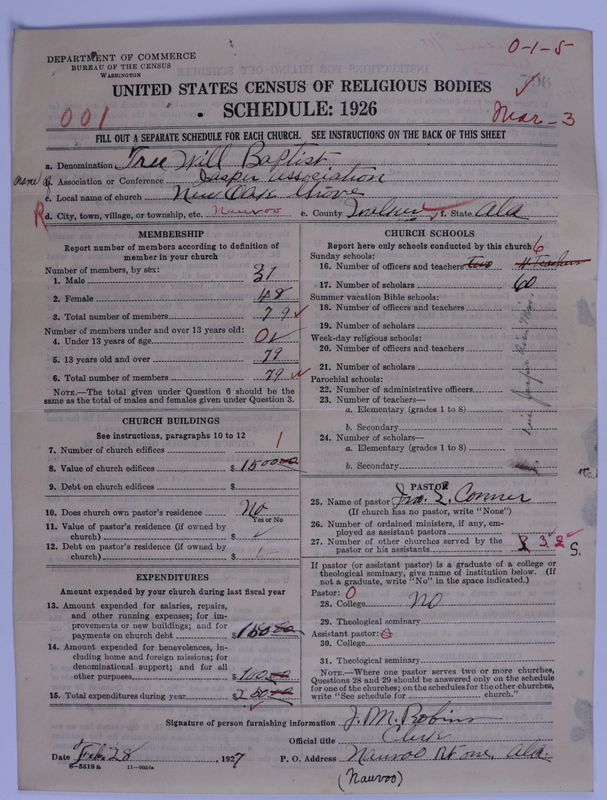 0-1-5
DEPARTMENT OF COMMERCE
BUREAU OF THE CENSUS
WASHINGTON
UNITED STATES CENSUS OF RELIGIOUS BODIES
SCHEDULE: 1926
001
Mar-3
FILL OUT A SEPARATE SCHEDULE FOR EACH CHURCH. SEE INSTRUCTIONS ON THE BACK OF THIS SHEET
a. Denomination Free Will Baptist
b. Association or Conference Jasper Association
c. Local name of church New Oak Grove
R d. City, town, village, or township, etc. Nauvoo e. County Walker f. State Ala
MEMBERSHIP
Report number of members according to definition of member in your church
Number of members, by sex:
1. Male 31
2. Female 48
3. Total number of members 79
Number of members under and over 13 years old:
4. Under 13 years of age 0
5. 13 years old and over 79
6. Total number of members 79
NOTE.—The total given under Question 6 should be the same as the total of males and females given under Question 3.
CHURCH BUILDINGS
See instructions, paragraphs 10 to 12
7. Number of church edifices 1
8. Value of church edifices $1500.00
9. Debt on church edifices $
10. Does church own pastor's residence No
Yes or No
11. Value of pastor's residence (if owned by church) $
12. Debt on pastor's residence (if owned by church) $
EXPENDITURES
Amount expended by your church during last fiscal year
13. Amount expended for salaries, repairs, and other running expenses; for improvements or new buildings; and for payments on church debt $150.00
14. Amount expended for benevolences, including home and foreign missions; for denominational support; and for all other purposes $100.00
15. Total expenditures during year $250.00
CHURCH SCHOOLS
Report here only schools conducted by this church
Sunday schools:
16. Number of officers and teachers Two 4 Teachers 6
17. Number of scholars 60
Summer vacation Bible schools:
18. Number of officers and teachers
19. Number of scholars
Week-day religious schools:
20. Number of officers and teachers
21. Number of scholars
Parochial schools:
22. Number of administrative officers
23. Number of teachers—
a. Elementary (grades 1 to 8)
b. Secondary
24. Number of scholars—
a. Elementary (grades 1 to 8)
b. Secondary
PASTOR
25. Name of pastor Ira L. Conner
(If church has no pastor, write "None")
26. Number of ordained ministers, if any, employed as assistant pastors
27. Number of other churches served by the pastor or his assistants 3 2 S.
If pastor (or assistant pastor) is a graduate of a college or theological seminary, give name of institution below. (If not a graduate, write "No" in the space indicated.)
Pastor: 0
28. College No
29. Theological seminary
Assistant pastor: 0
30. College
31. Theological seminary
NOTE.—Where one pastor serves two or more churches, Questions 28 and 29 should be answered only on the schedule for one of the churches; on the schedules for the other churches, write "See schedule for church."
Signature of person furnishing information J. M. Robins
Official title Clerk
Date Feb 28, 1927 P. O. Address Nauvoo Rt one, Ala.
8-5518a 11-9051a
(Nauvoo)